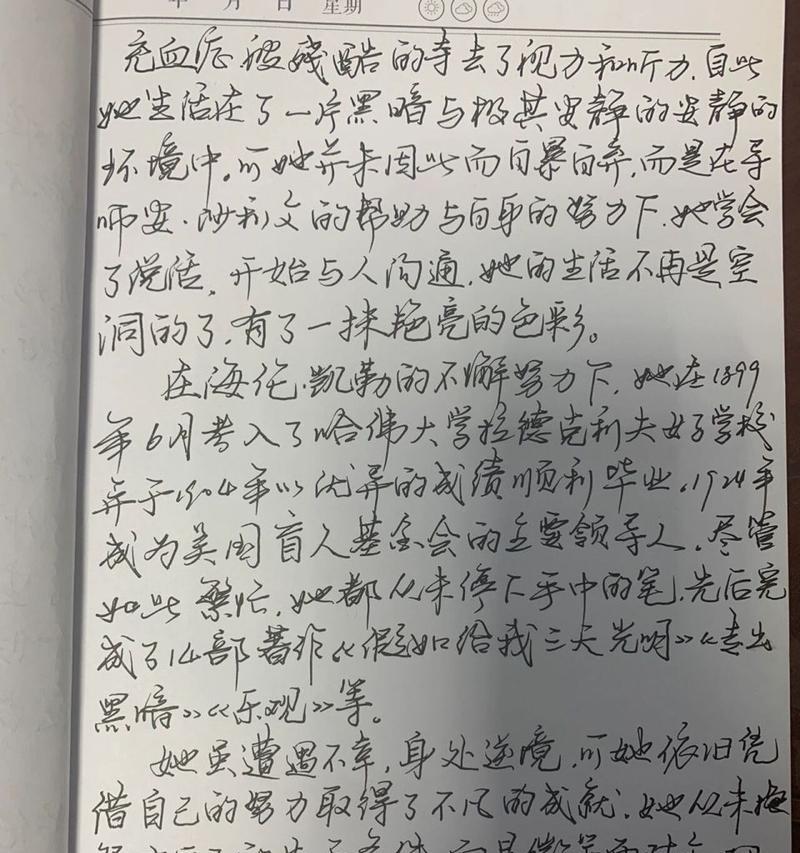 年 月 日 星期
充血症被残酷的夺去了视力和听力.自此
她生活在了一片黑暗与极其安静的安静的
环境中.可她并未因此而自暴自弃.而是在导
师安·沙利文的帮助与自身的努力下.她学会
了说话.开始与人沟通.她的生活不再是空
洞的了.有了一抹艳亮的色彩。
在海伦·凯勒的不懈努力下.她在1899
年6月考入了哈佛大学拉德克利夫女子学校
并于1904年以优异的成绩顺利毕业.1924年
成为美国盲人基金会的主要领导人.尽管
如此繁忙.她都从未停下手中的笔.先后完
成了14部著作《假如给我三天光明》《走出
黑暗》《乐观》等。
她虽遭遇不幸,身处逆境.可她依旧凭
借自己的努力取得了不凡的成就.她从未抱